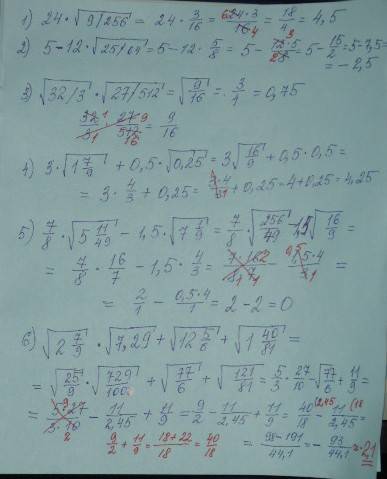 1) 24 · √(9/256) = 24 · 3/16 = 24·3/16 = 18/4 = 4,5
2) 5-12 · √(25/64) = 5-12 · 5/8 = 5 - 12·5/8 = 5 - 15/2 = 5-7,5 =
= -2,5
3) √(32/3) · √(27/512) = √(9/16) = 3/1 = 0,75
32/3 · 27/512 = 9/16
4) 3 · √(1 7/9) + 0,5 · √0,25 = 3 √(16/9) + 0,5 · 0,5 =
= 3 · 4/3 + 0,25 = 3·4/3 + 0,25 = 4+0,25 = 4,25
5) 7/8 · √(5 11/49) - 1,5 · √(7 1/9) = 7/8 · √(256/49) - 1,5 √(16/9) =
= 7/8 · 16/7 - 1,5 · 4/3 = 7·16/8·7 - 1,5·4/3 =
= 2/1 - 0,5·4/1 = 2 - 2 = 0
6) √(2 7/9) · √7,29 + √(12 5/6) + √(1 40/81) =
= √(25/9) · √(729/100) + √(77/6) + √(121/81) = 5/3 · 27/10 - √(77/6) + 11/9 =
= 5·27/3·10 - 11/2,45 + 11/9 = 9/2 - 11/2,45 + 11/9 = 40/18 - 11/2,45 =
9/2 + 11/9 = 18+22/18 = 40/18
= 98-191/44,1 = - 93/44,1 ≈ 2,1